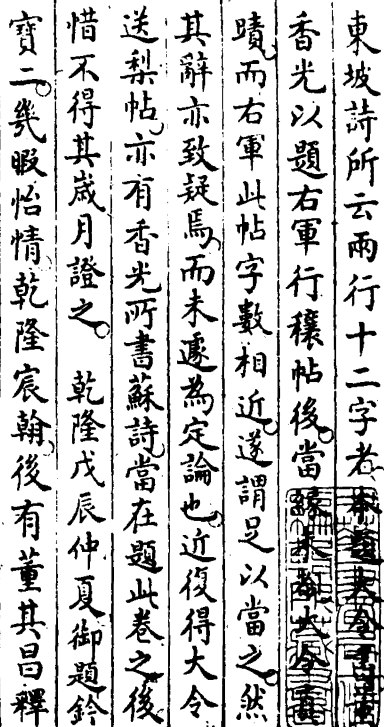 東坡詩所云兩行十二字者本題大令
香光以題右軍行穰帖後當緣未大令
蹟而右軍此帖字數相近遂謂足以當之然
其辭亦致疑焉而未遽為定論也近復得大令
送梨帖亦有香光所書蘇詩當在題此卷之後
惜不得其歲月證之 乾隆戊辰仲夏御題鈐
寶二幾暇怡情乾隆宸翰後有董其昌釋